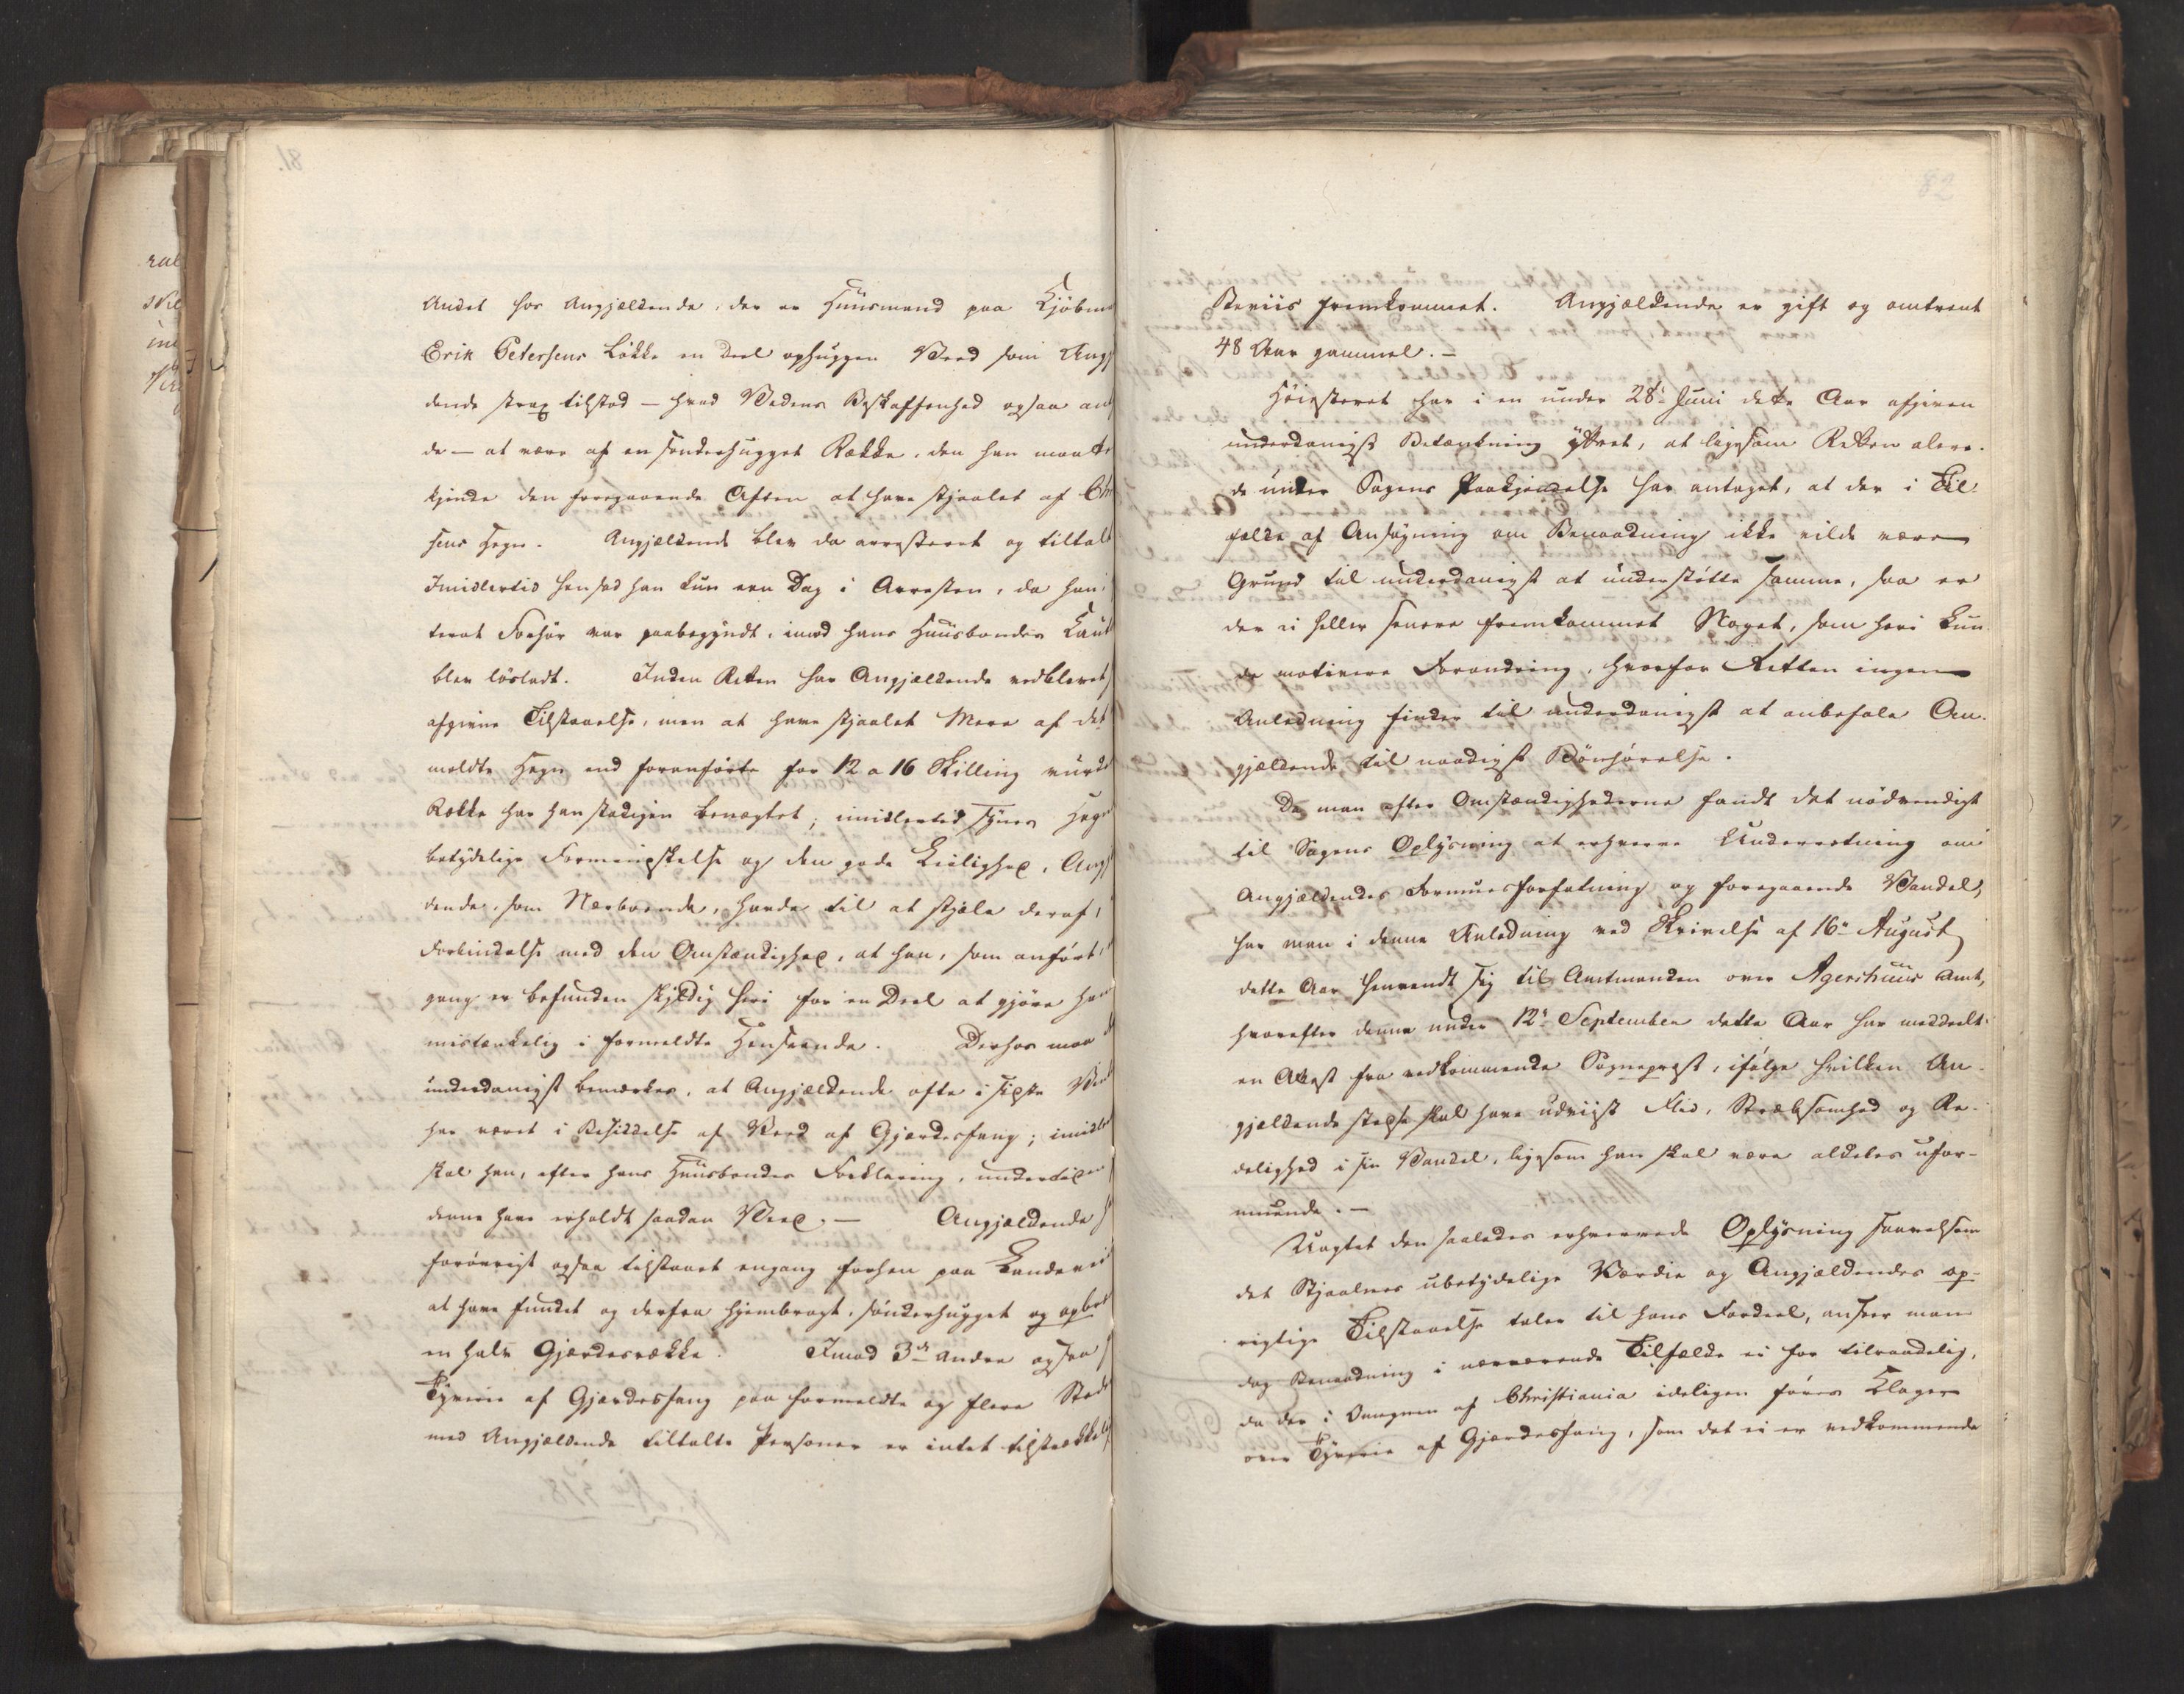 Andet hos Angjældende, der er Huusmand paa Kjöbm
Erik Petersens Løkke en Deel ophuggen Veed som Angj
dende strax tilstod – hvad Vedens Beskaffenhed ogsaa an
de – at være af en sønderhugget Række, den han maatte
kjende den foregaaende Aften at have stjaalet af Chr
sens Hegn. Angjældende blev da arresteret og tiltalt
Imidlertid hensad han kun een Dag i Arresten, da han
teret Forhør var paabegyndt, imod hans Huusbondes Caut
blev løsladt. Inden Retten har Angjældende vedblevet
afgivne Tilstaaelse, men at have stjaalet Mere af det
meldte Hegn end foranførte for 12 a 16 Skilling vurde
Række har han stadigen benægtet; imidlertid synes Hegn
betydelige Formindskelse og den gode Leilighed, Angj
dende, som Nærboende, havde til at stjæle deraf, i
Forbindelse med den Omstændighed, at han, som anført
gang er befunden skyldig heri for en Deel at gjøre ham
mistænkelig i formeldte Henseende. Derhos maa
underdanigst bemærkes, at Angjældende ofte i sidste Vin
har været i Besiddelse af Veed af Gjærdesfang; imidler
skal han, efter hans Huusbondes Forklaring, undertiden
denne have erholdt saadan Veed. – Angjældende
forøvrigt ogsaa tilstaaet engang forhen paa Landevei
at have fundet og derfra hjembragt, sønderhugget og opbr
en halv Gjærdesrække. Imod 3de andre ogsaa
Tyverie af Gjærdesfang paa formeldte og flere Sted
med Angjældende tiltalte Personer er intet tilstrækkel
82
Beviis fremkommet. Angjældende er gift og omtrent
48 Aar gammel. –
Høiesteret har i en under 28de Juni dette Aar afgiven
underdanigst Betænkning yttret, at ligesom Retten allere-
de under Sagens Paakjendelse har antaget, at der i Til-
fælde af Ansøgning om Benaadning ikke vilde være
Grund til underdanigst at understøtte samme, saa er
der ei heller senere fremkommet Noget, som heri kun-
de motivere Forandring, hvorfor Retten ingen
Anledning finder til underdanigst at anbefale An-
gjældende til naadigst Bønhørelse.
Da man efter Omstændighederne fandt det nødvendigt
til Sagens Oplysning at erhverve Underretning om
Angjældendes Formuesforfatning og foregaaende Vandel,
har man i denne Anledning ved Skrivelse af 16de August
dette Aar henvendt sig til Amtmanden over Agershuus Amt,
hvorefter denne under 12te September dette Aar har meddeelt
en Attest fra vedkommende Sognepræst, ifølge hvilken An-
gjældende stedse skal have udviist Flid, Stræbsomhed og Re-
delighed i sin Vandel, ligesom han skal være aldeles ufor-
muende. –
Uagtet den saaledes erhvervede Oplysning saavelsom
det Stjaalnes ubetydelige Værdie og Angjældendes op-
rigtige Tilstaaelse taler til hans Fordeel, anseer man
dog Benaadning i nærværende Tilfælde ei for tilraadelig,
da der i Omegnen af Christiania idelige­n føres Klager
over Tyverie af Gjærdesfang, som det ei er vedkommende